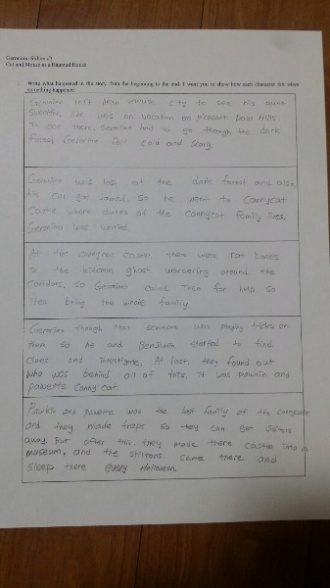 Geronimo Stilton #3
Cat and Mouse in a Haunted House
Write what happened in the story from the beginning to the end. I want you to show how each character felt when
something happened.
Geronimo left New mouse city to see his aunt
she was on vacation on pleasant Hills.
To see there, Geronimo had to go through the dark
forest. Geronimo felt cold and scary.
Geronimo was lost at the dark forest and also,
his car got so he went to Cannycat
Castle where of the Cannycat family lives
Geronimo was worried.
At the cannycat castle, there were bones
in the kitchen, ghost wandering around the
so Geronimo called for help so
bring the whole family.
Geronimo though that someone was playing tricks on
them so he and Benjamin started to find
clues and At last, they found out
who was behind all of this. it was and
canny cat.
and was the last family of the cannycat
and they made traps so they can get
away. But after this, they made there castle into a
museum, and the stiltons came there and
sleep there every Halloween.